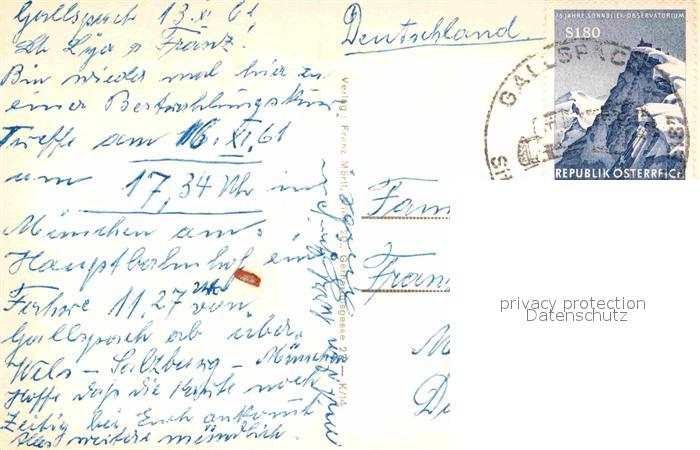 Gallspach 13.XI.61
Lb Lya u Franz!
Bin wieder mal hier zu
einer Bestrahlungskur
Treffe am 16.XI.61
um 17,34 Uhr in
München am
Hauptbahnhof ein
Fahre 11,27 Uhr von
Gallspach ab über
Wels – Salzburg – München
Hoffe daß die Karte noch
Zeitig bei Euch ankommt
Alles weitere mündlich
Verlag: Franz Mörtl, Wien
gasse 2 — K/14
Deutschland.
75 JAHRE SONNBLICK-OBSERVATORIUM
S1.80
REPUBLIK ÖSTERREICH
GALLSPACH
Fam
Franz
privacy protection
Datenschutz